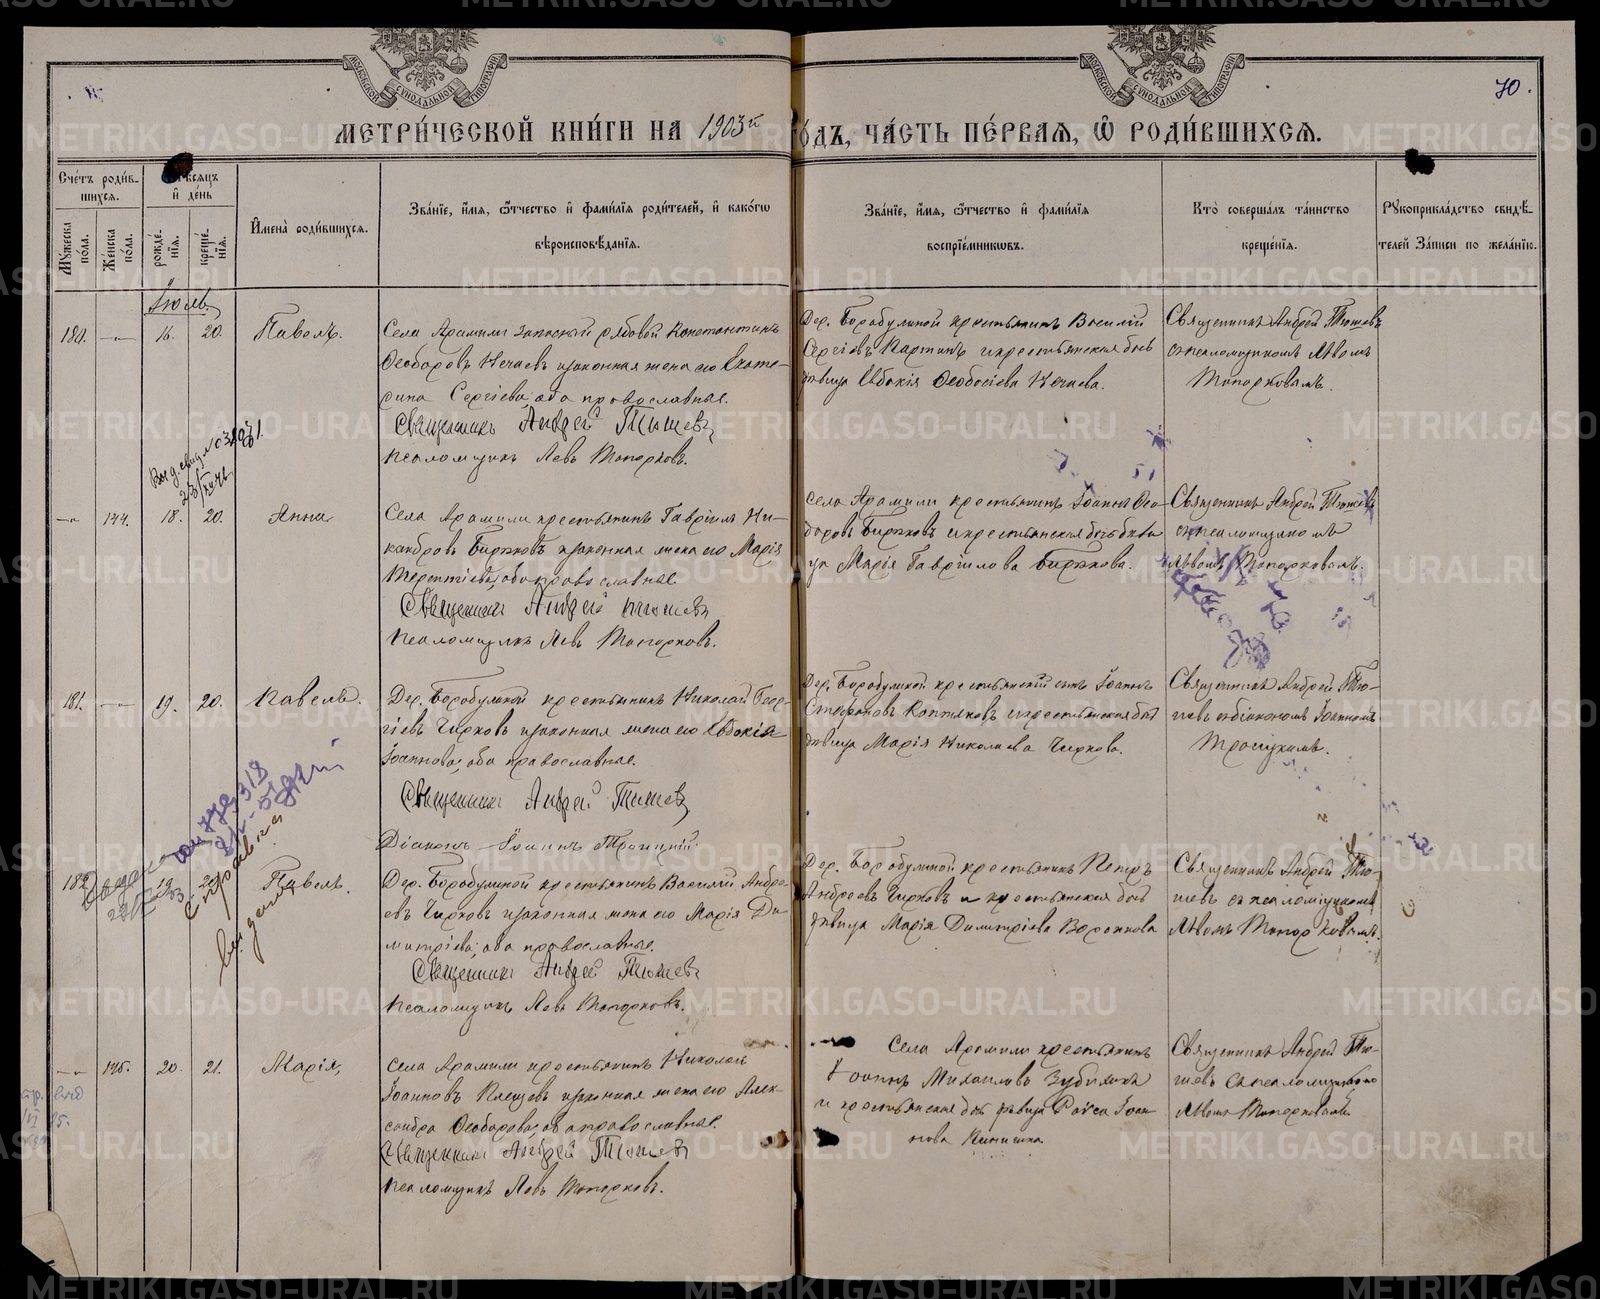 МЕТРИ́ЧЕСКОЙ КНИ́ГИ НА 1903й ГО́ДЪ, ЧА́СТЬ ПЕ́РВАЯ, Ѽ РОДИ́ВШИХСЯ.
70.
Сче́тъ роди́в-
шихся.
Му́жеска по́ла.
Же́нска по́ла.
Мѣсяцъ
и҆ де́нь
рожде́нія.
креще́нія.
И҆мена̀ роди́вшихся.
Зва́ніе, и҆́мя, ѻ҆́тчество и҆ фами́лія роди́телей, и҆ како́гѡ
вѣроисповѣ́данія.
Зва́ніе, и҆́мя, ѻ҆́тчество и҆ фами́лія
воспріе́мниковъ.
Кто̀ соверша́лъ та́инство
креще́нія.
Рукоприкла́дство свидѣ́-
телей за́писи по жела́нію.
Іюль.
180.
16.
20.
Павелъ.
Села Арамили запасный рядовой Константинъ
Ѳеодоровъ Нечаевъ и законная жена его Екате-
рина Сергіева, оба православные.
Священникъ Андрей Тюшевъ
Псаломщикъ Левъ Топорковъ.
Дер. Бородулиной крестьянинъ Василій
Сергіевъ Партинъ и крестьянская дочь
дѣвица Евдокія Ѳеодосіева Нечаева.
Священникъ Андрей Тюшевъ
съ псаломщикомъ Львомъ
Топорковымъ.
144.
18.
20.
Анна
Села Арамили крестьянинъ Гавріилъ Ни-
кандровъ Бирюковъ и законная жена его Марія
Терентіева, оба православные.
Священникъ Андрей Тюшевъ
Псаломщикъ Левъ Топорковъ.
Села Арамили крестьянинъ Іоаннъ Ѳео-
доровъ Бирюковъ и крестьянская дочь дѣви-
ца Марія Гавріилова Бирюкова.
Священникъ Андрей Тюшевъ
съ псаломщикомъ
Львомъ Топорковымъ.
181.
19.
20.
Павелъ.
Дер. Бородулиной крестьянинъ Николай Геор-
гіевъ Чирковъ и законная жена его Евдокія
Іоаннова, оба православные.
Священникъ Андрей Тюшевъ
Діаконъ Іоаннъ Троицкій
Дер. Бородулиной крестьянскій сынъ Іоаннъ
Стефановъ Коптяковъ и крестьянская дочь
дѣвица Марія Николаева Чиркова.
Священникъ Андрей Тю-
шевъ съ діакономъ Іоанномъ
Троицкимъ.
182.
19.
20.
Павелъ.
Дер. Бородулиной крестьянинъ Василій Андре-
евъ Чирковъ и законная жена его Марія Ди-
митріева, оба православные.
Священникъ Андрей Тюшевъ
Псаломщикъ Левъ Топорковъ.
Дер. Бородулиной крестьянинъ Петръ
Андреевъ Чирковъ и крестьянская дочь
дѣвица Марія Димитріева Воронкова
Священникъ Андрей Тю-
шевъ съ псаломщикомъ
Львомъ Топорковымъ.
145.
20.
21.
Марія,
Села Арамили крестьянинъ Николай
Іоанновъ Клещевъ и законная жена его Алек-
сандра Ѳеодорова, оба православные.
Священникъ Андрей Тюшевъ
Псаломщикъ Левъ Топорковъ.
Села Арамили крестьянинъ
Іоаннъ Михаиловъ Зубихинъ
и крестьянская дочь дѣвица Раиса Іоан-
нова
Священникъ Андрей Тю-
шевъ съ псаломщикомъ
Львомъ Топорковымъ
METRIKI.GASO-URAL.RU